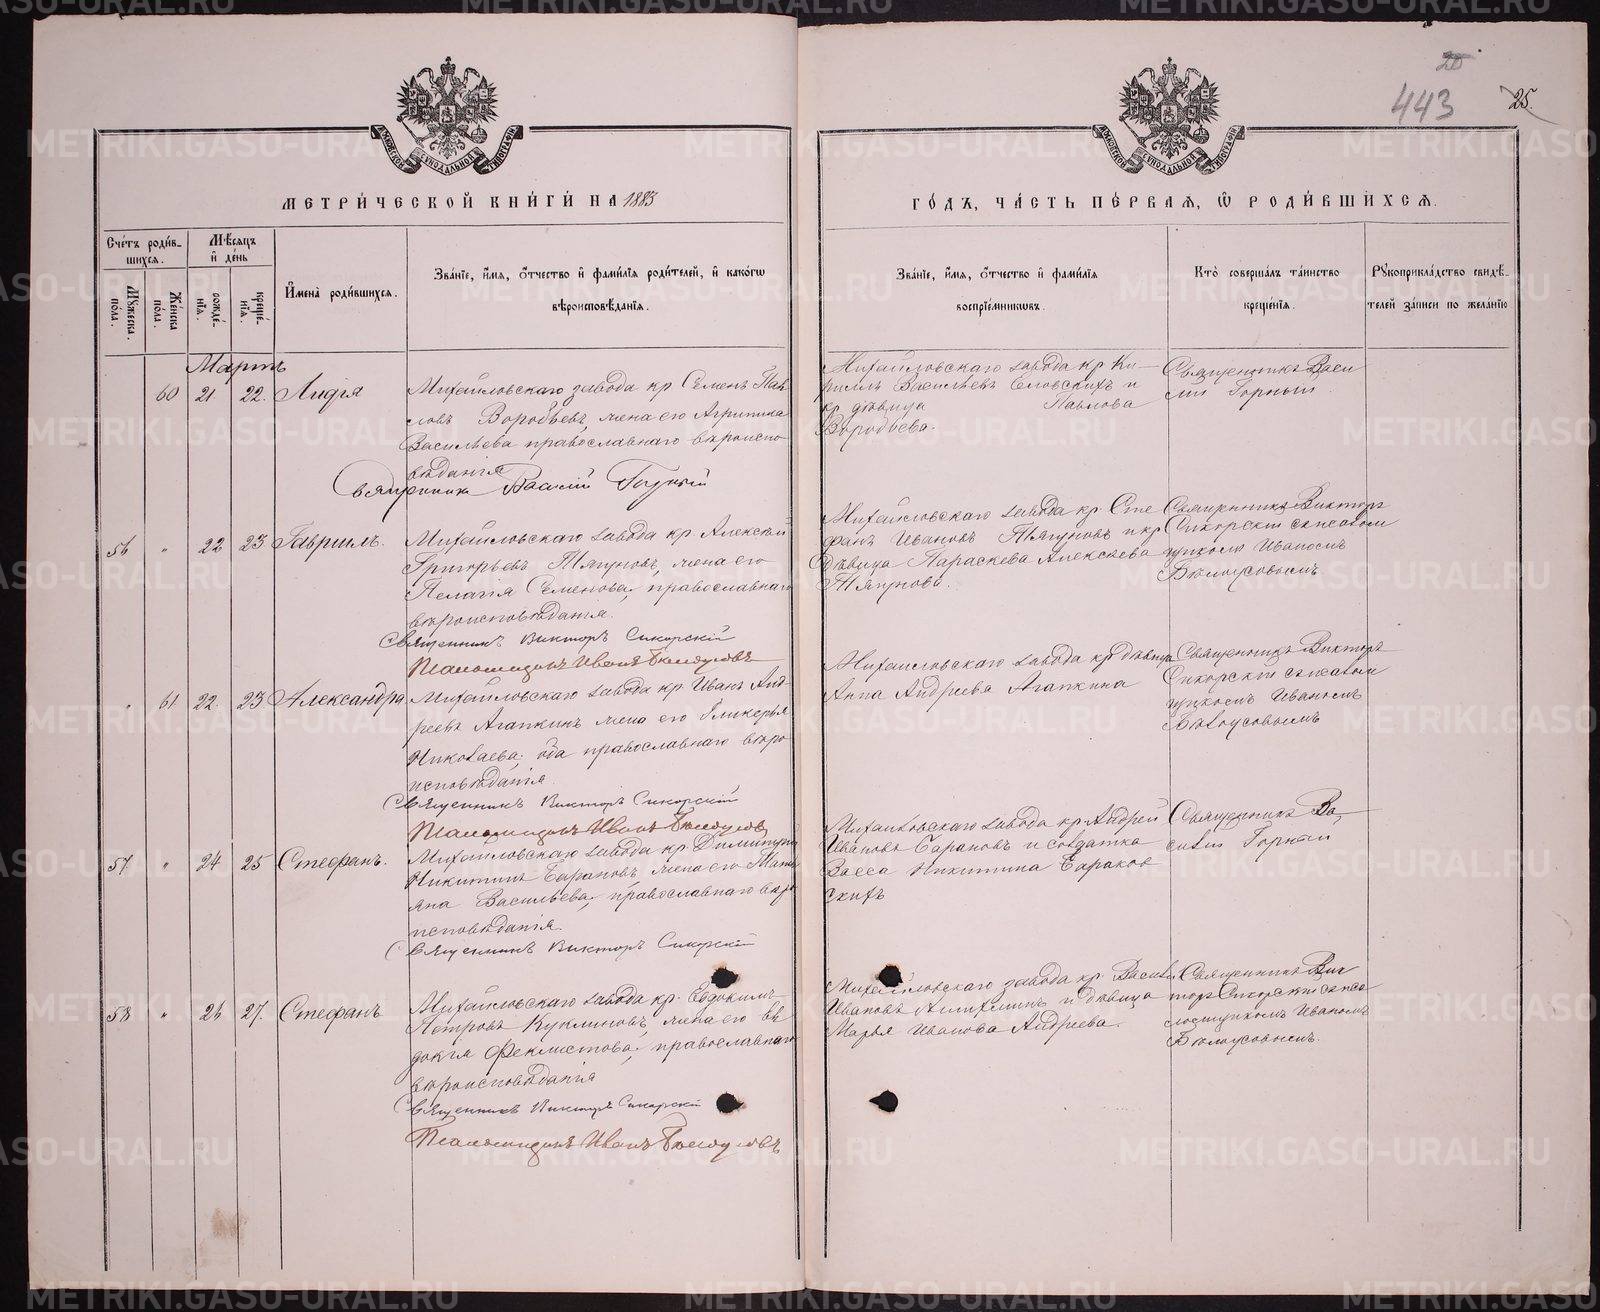 20
443
25.
МЕТРИ́ЧЕСКОЙ КНИ́ГИ НА 1883
ГО́ДЪ, ЧА́СТЬ ПЕ́РВАЯ, Ѡ РОДИ́ВШИХСЯ.
Сче́тъ роди́в-
шихся.
Мꙋжеска
по́ла.
Же́нска
по́ла.
Мѣ́сяцъ
и҆ де́нь
рожде́-
нїя.
креще́-
нїя.
И҆мена̀ роди́вшихся.
Зва́нїе, и҆́мя, ѻ҆́тчество и҆ фами́лїя роди́телей, и҆ како́гѡ
вѣроисповѣ́данїя.
Зва́нїе, и҆́мя, ѻ҆́тчество и҆ фами́лїя
воспрїе́мникѡвъ.
Кто̀ соверша́лъ та́инство
креще́нїя.
Рꙋкоприкла́дство свидѣ́-
телей за́писи по жела́нїю
Мартъ
60 21 22. Лидія
Михайловскаго завода кр. Семенъ Пав-
ловъ Воробьевъ, жена его Агрипина
Васильева православнаго вѣроиспо-
вѣданія
Священникъ Василій Горный
Михайловскаго завода кр Ки-
риллъ Васильевъ Еловскихъ и
кр дѣвица Павлова
Воробьева.
Священникъ Васи
лій Горный
56 " 22 23 Гавріилъ.
Михайловскаго завода кр. Алексѣй
Григорьевъ Тягуновъ, жена его
Пелагія Семенова, православнаго
вѣроисповѣданія.
Священникъ Викторъ Сикорскій
Псаломщикъ Иванъ Бѣлоусовъ
Михайловскаго завода кр. Сте
фанъ Ивановъ Тягуновъ и кр
дѣвица Параскева Алексѣева
Тягунова.
Священникъ Викторъ
Сикорскій съ псалом
щикомъ Иваномъ
Бѣлоусовымъ
" 61 22. 23 Александра.
Михайловскаго завода кр. Иванъ Анд-
реевъ Агапкинъ жена его Гликерья
Николаева, оба православнаго вѣро
исповѣданія
Священникъ Викторъ Сикорскій
Псаломщикъ Иванъ Бѣлоусовъ
Михайловскаго завода кр дѣвица
Анна Андреева Агапкина
Священникъ Викторъ
Сикорскій съ псалом
щикомъ Иваномъ
Бѣлоусовымъ
57 " 24 25 Стефанъ.
Михайловскаго завода кр. Димитрій
Никитинъ Барановъ, жена его Тать
яна Васильева, православнаго вѣро
исповѣданія.
Священникъ Викторъ Сикорскій
Михайловскаго завода кр. Андрей
Ивановъ Барановъ и солдатка
Васса Никитина Баранов
скихъ
Священникъ Ва
силій Горный
58 " 26 27. Стефанъ
Михайловскаго завода кр. Евдокимъ
Петровъ Куклиновъ, жена его Ев
докія Феклистова, православнаго
вѣроисповѣданія
Священникъ Викторъ Сикорскій
Псаломщикъ Иванъ Бѣлоусовъ
Михайловскаго завода кр. Василій
Ивановъ и дѣвица
Марья Иванова Андреева.
Священникъ Вик
торъ Сикорскій съ пса
ломщикомъ Иваномъ
Бѣлоусовымъ.
METRIKI.GASO-URAL.RU